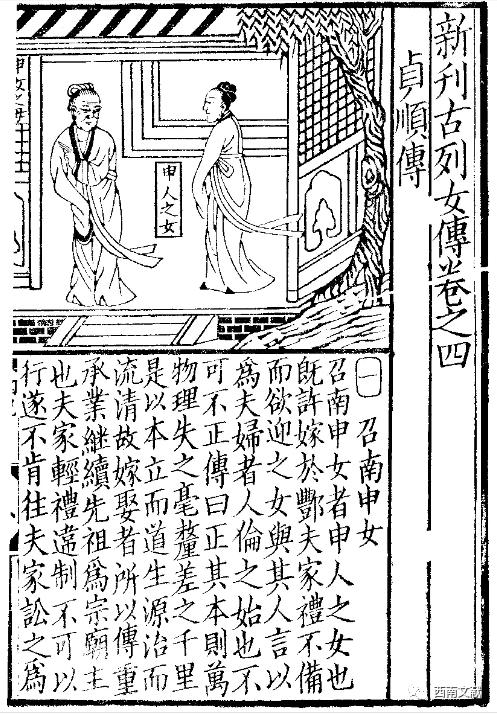 新刊古列女傳卷之四
貞順傳
申人之女
一 召南申女
召南申女者申人之女也
既許嫁於酆夫家禮不備
而欲迎之女與其人言以
爲夫婦者人倫之始也不
可不正傳曰正其本則萬
物理失之毫釐差之千里
是以本立而道生源治而
流清故嫁娶者所以傳重
承業繼續先祖爲宗廟主
也夫家輕禮違制不可以
行遂不肯往夫家訟之爲
西南文献